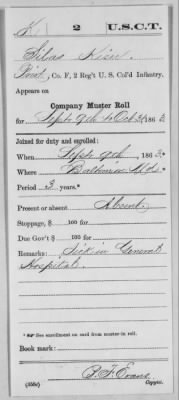 K | 2 | U.S.C.T.
Silas Kiser
Pvt., Co. F, 2 Reg't U. S. Col'd Infantry.
Appears on
Company Muster Roll
for Sept 9th to Oct 31, 1863
Joined for duty and enrolled:
When Sept 9th, 1863*
Where Baltimore Md.
Period 3 years.*
Present or absent Absent
Stoppage, $ 100 for
Due Gov't $ 100 for
Remarks: Sick in General
Hospital.
* See enrollment on card from muster-in roll.
Book mark:
B. F. Evans
Copyist.